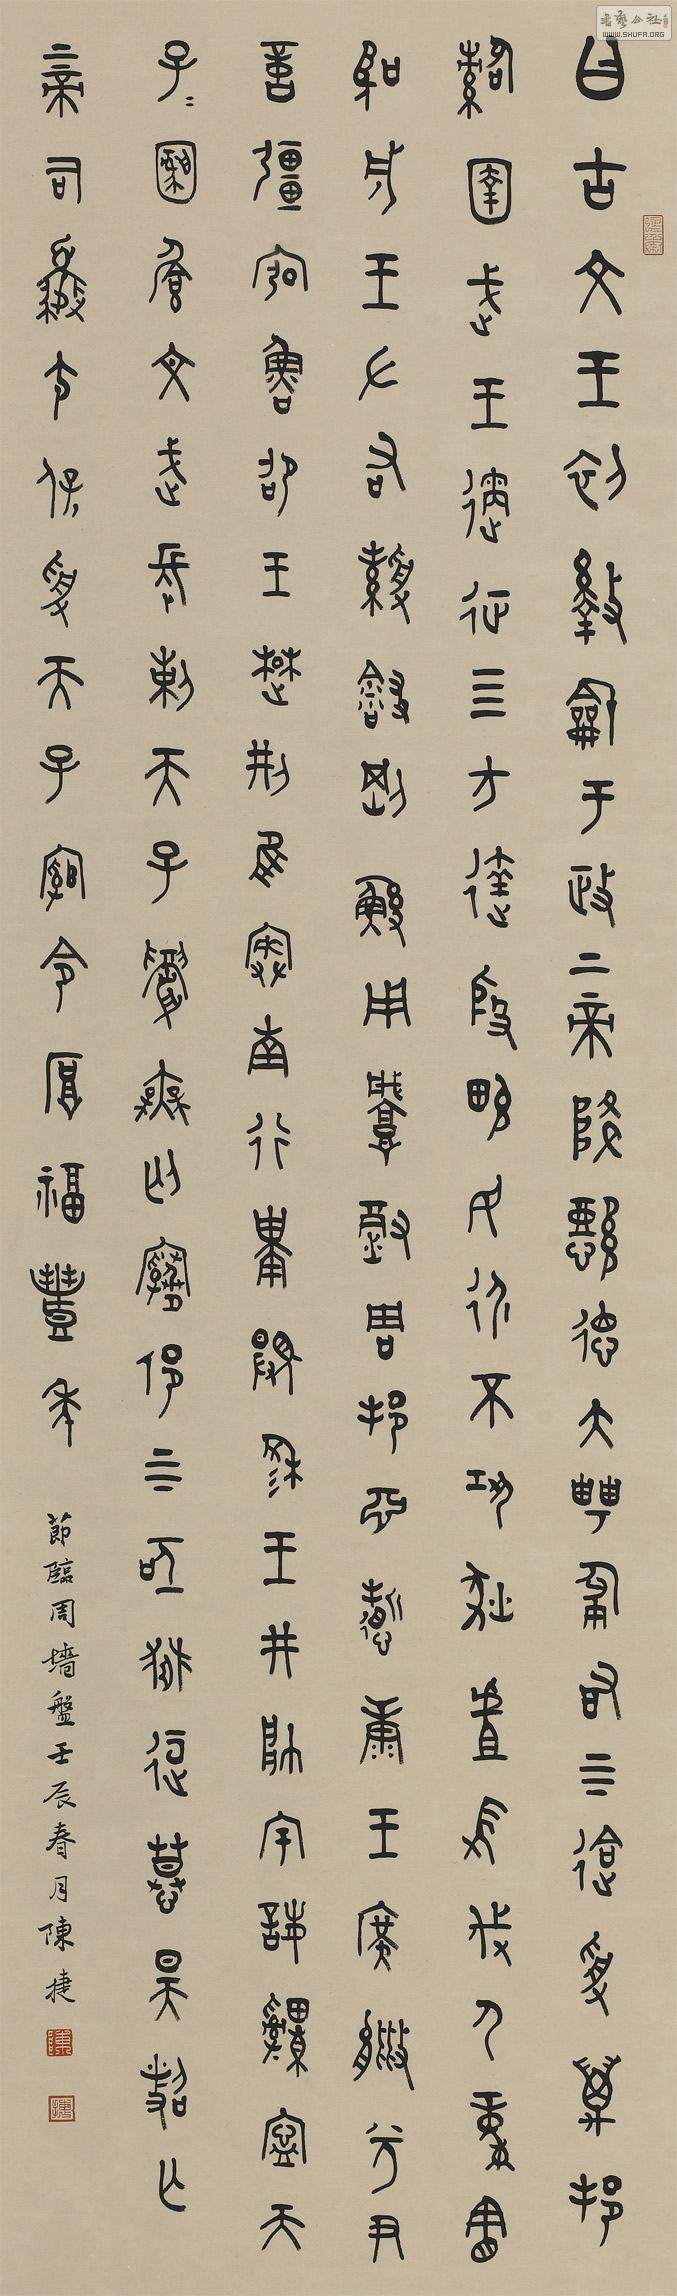 曰古文王初盭龢于政上帝降懿德大甹匍有上下迨受萬邦
圉武王遹征四方達殷畯民永不巩狄虘伐夷童憲
聖成王左右剛鯀用肇徹周邦淵哲康王兮尹
億疆宏魯昭王楚荊隹寏南行祗顯穆王井帥宇誨申寧天
子文武長剌天子無匄祁上下亟桓慕昊照亡
上帝司夒尢保受天子綰令厚福豐年
節臨周墻盤壬辰春月陳捷
書藝公社
WWW.SHUFA.ORG